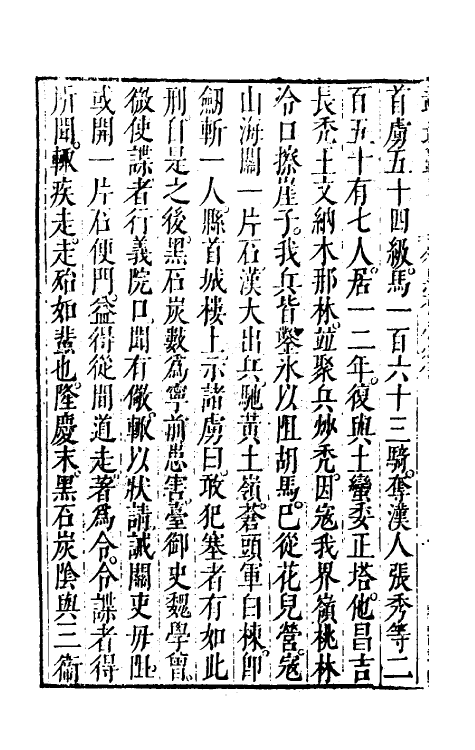 首虜五十四級。馬一百六十三騎。奪漢人張秀等二
百五十有七人。居一二年。復與土蠻委正塔他昌吉
長禿土艾納木那林。竝聚兵炒禿。因寇我界嶺桃林
冷口擦崖子。我兵皆鑿氷以阻胡馬。已從花兒營。寇
山海關一片石漢大出兵馳黃土嶺。蒼頭軍白楝卽
劒斬一人。縣首城樓上示諸虜曰。敢犯塞者有如此
刑。自是之後。黑石炭數爲寧前患害。臺御史魏學曾。
微使諜者行義院口聞有儆。輒以狀請誡關吏毋
或開一片石便門。益得從間道走。著爲令。令諜者得
所聞。輒疾走。走殆如蜚也。隆慶末。黑石炭陰與三衞